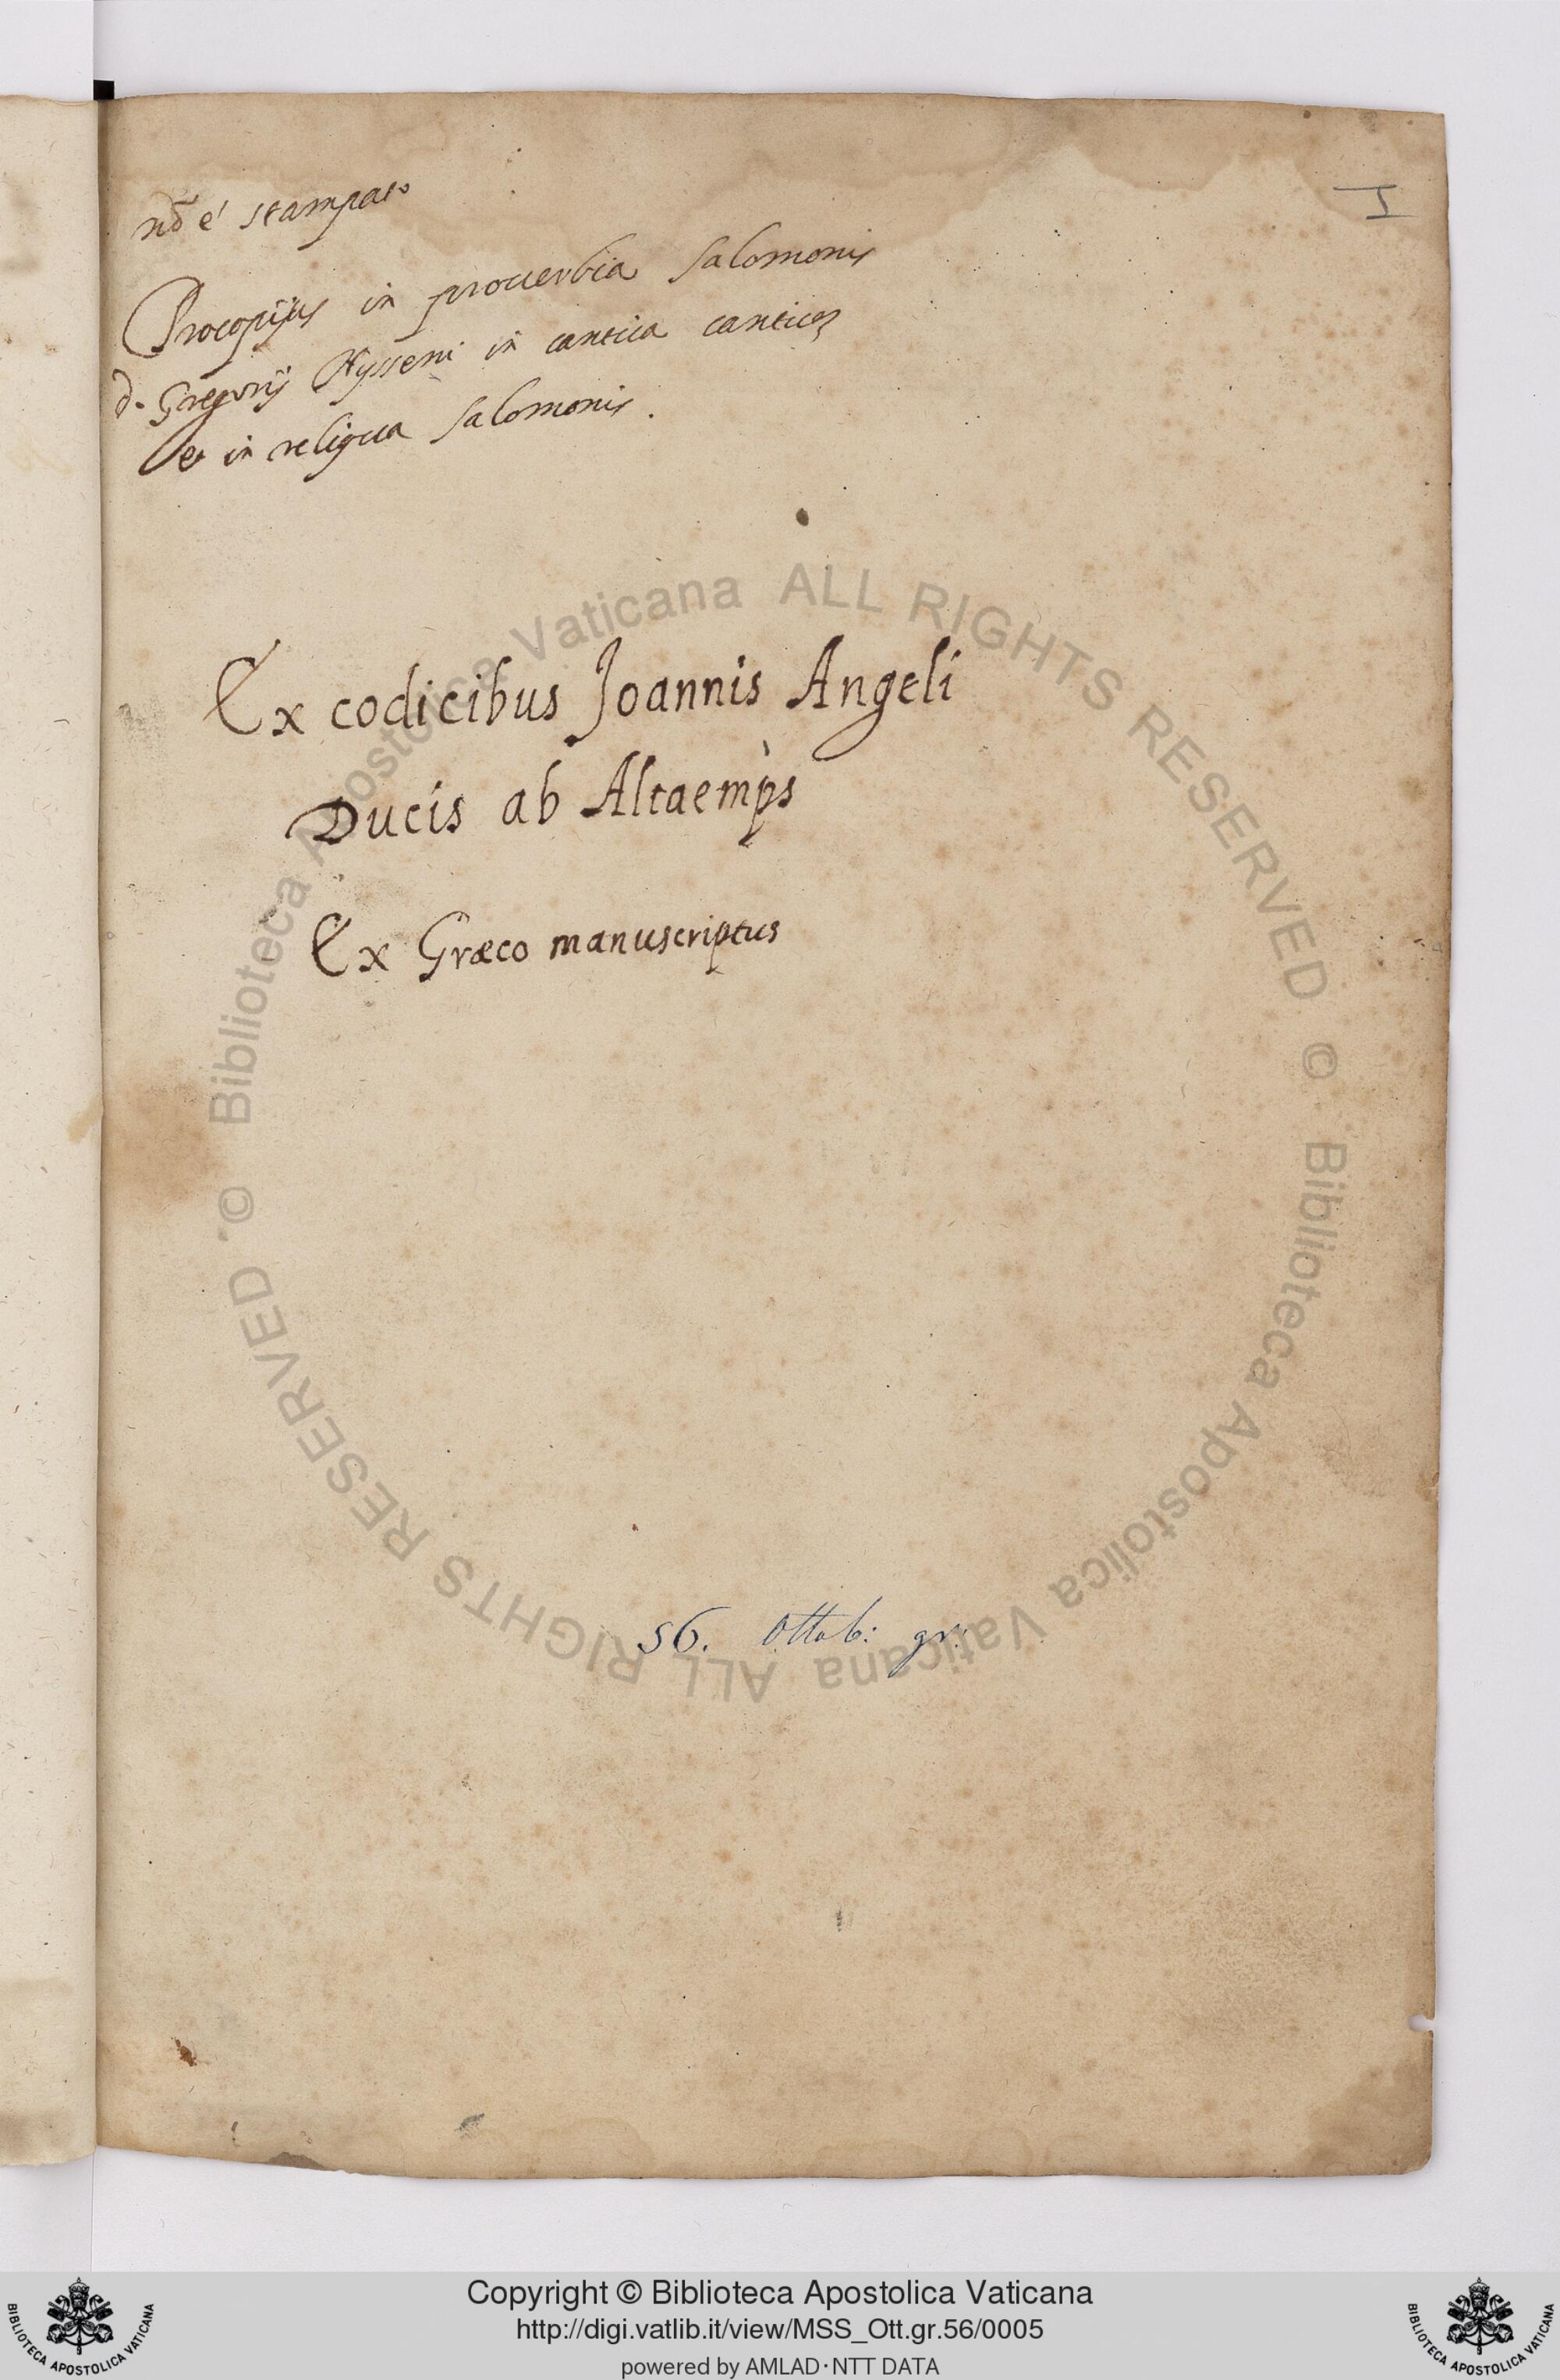 I
nō e' stampato
Procopijus in prouerbia Salomonis
d. Gregorij Nysseni in cantica canticoꝝ
et in reliqua Salomonis.
Ex codicibus Joannis Angeli
Ducis ab Altaemps
Ex Græco manuscriptus
56. Ottob: gr:
© Biblioteca Apostolica Vaticana ALL RIGHTS RESERVED
© Biblioteca Apostolica Vaticana ALL RIGHTS RESERVED
Copyright © Biblioteca Apostolica Vaticana
http://digi.vatlib.it/view/MSS_Ott.gr.56/0005
powered by AMLAD·NTT DATA
BIBLIOTECA APOSTOLICA VATICANA
BIBLIOTECA APOSTOLICA VATICANA